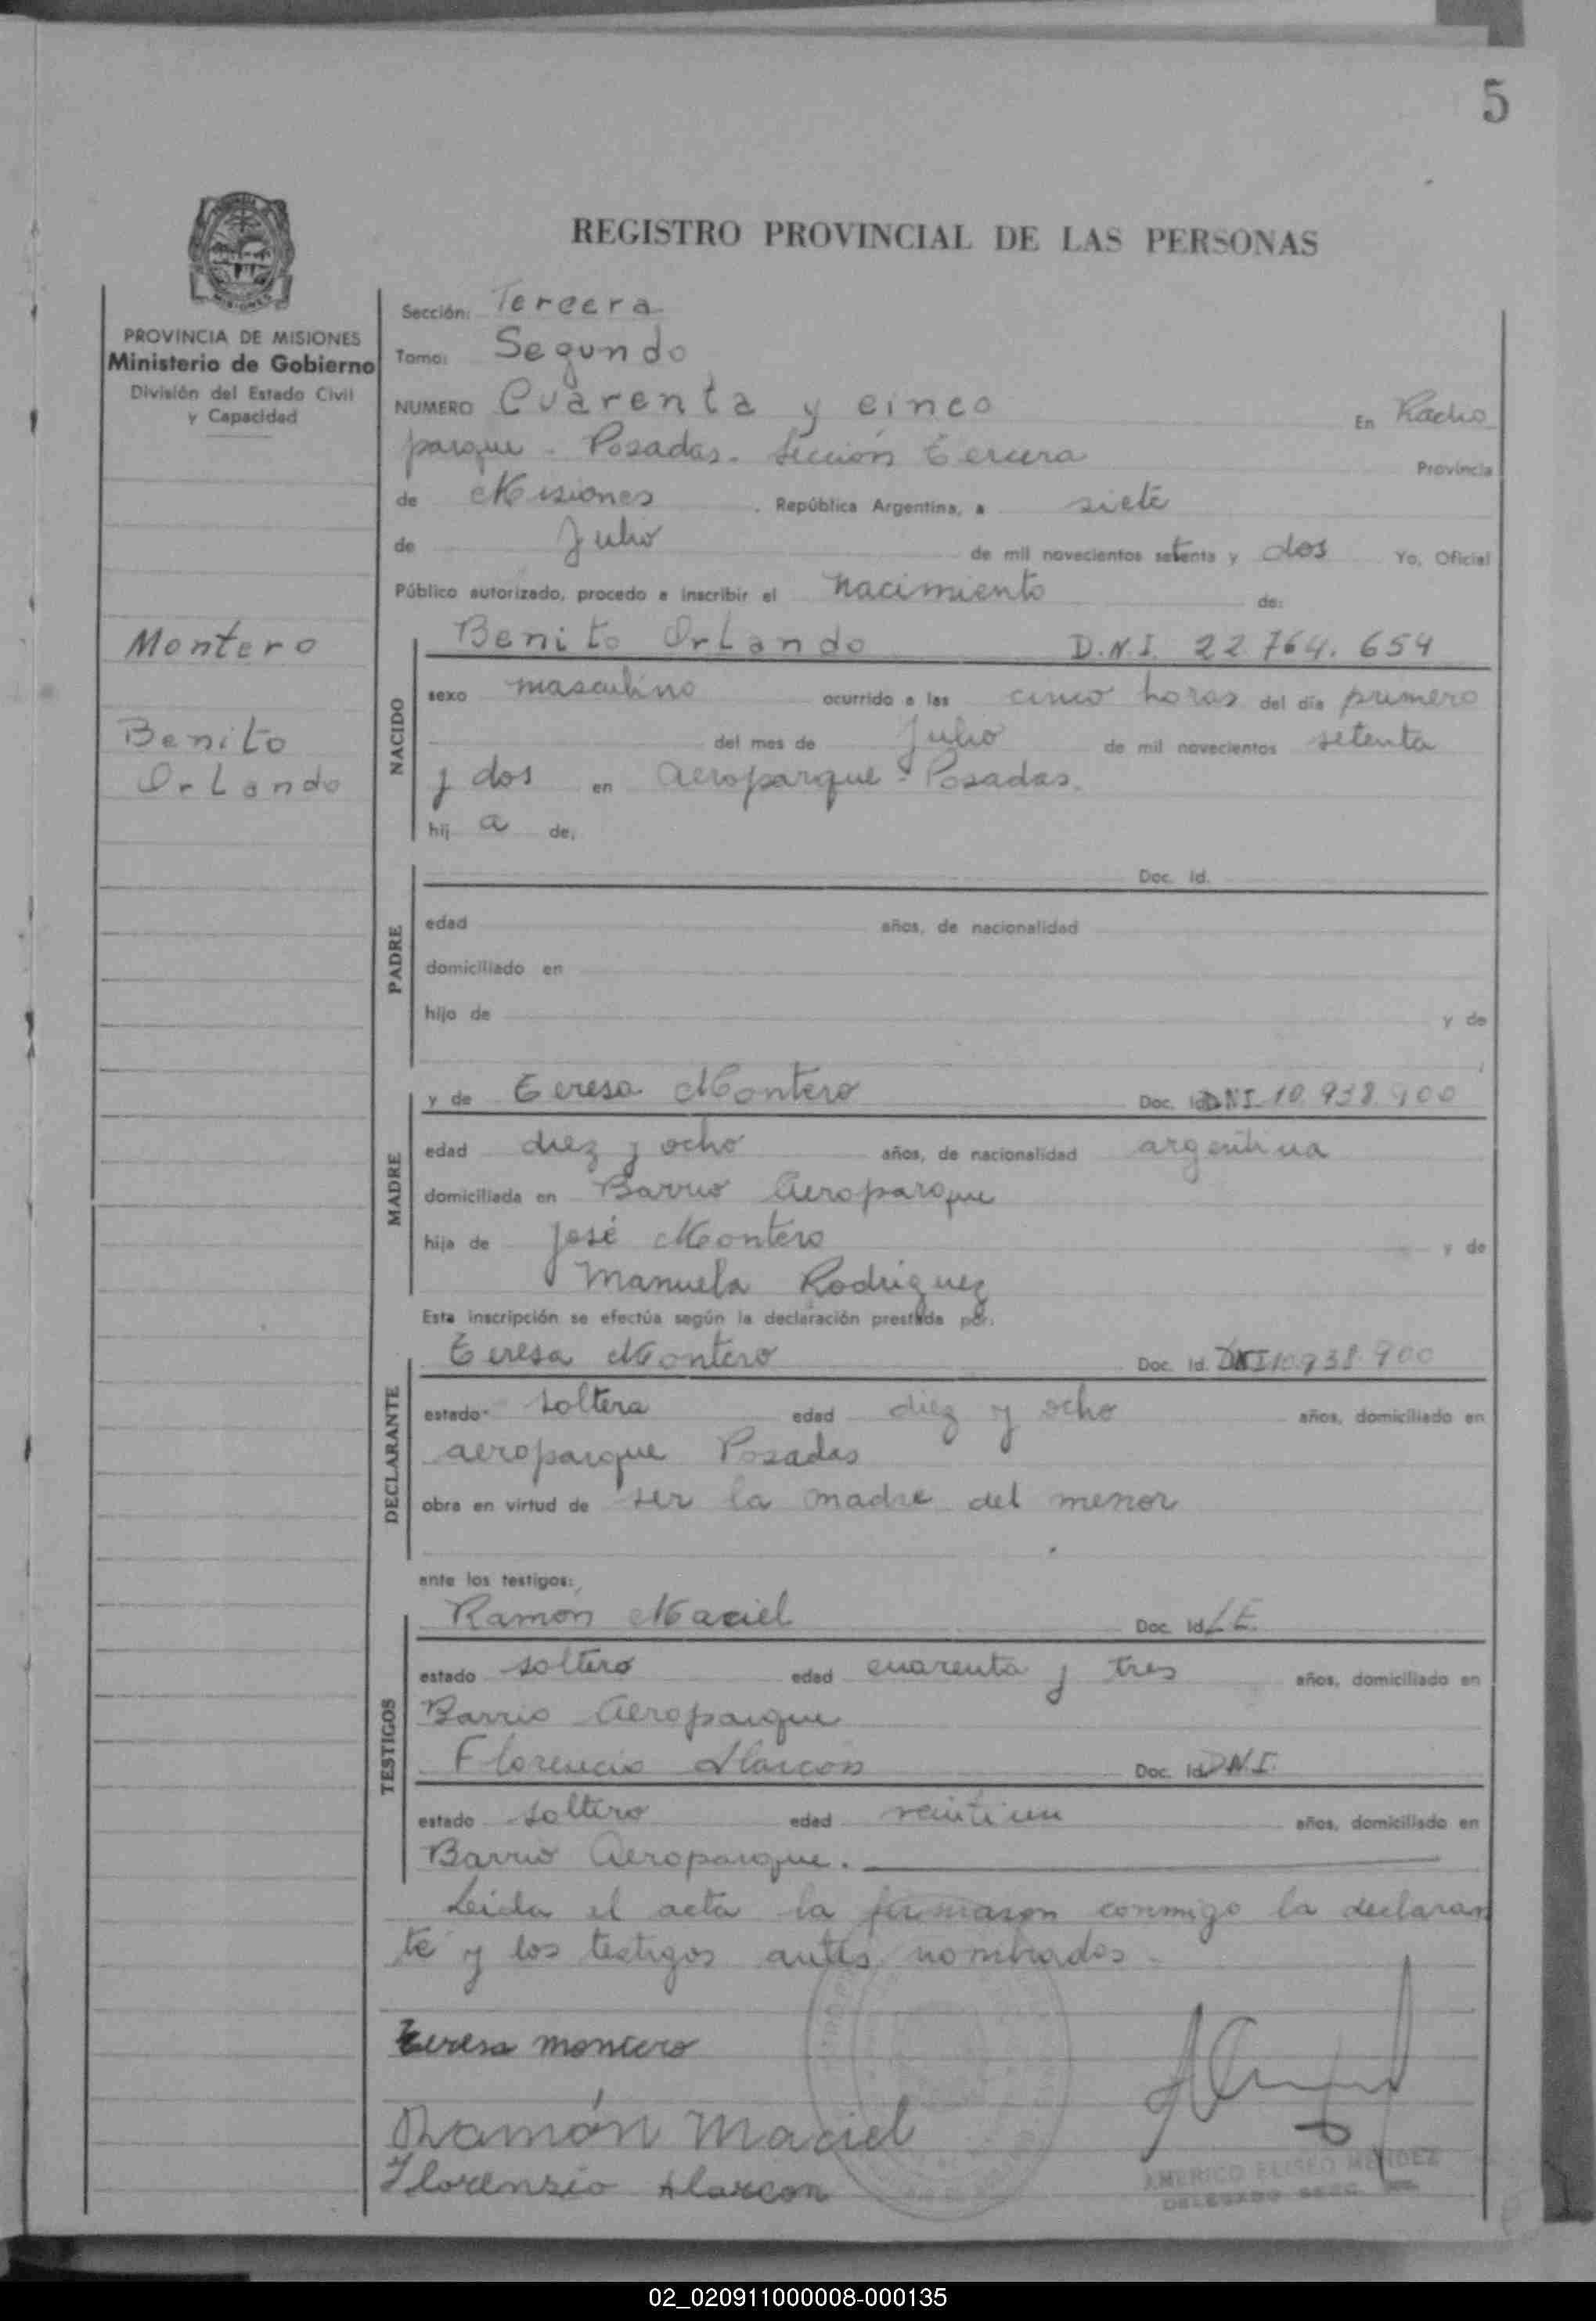 5
REGISTRO PROVINCIAL DE LAS PERSONAS
MISIONES
PROVINCIA DE MISIONES
Ministerio de Gobierno
División del Estado Civil
y Capacidad
Montero
Benito
Orlando
Sección: Tercera
Tomo: Segundo
NUMERO Cuarenta y cinco En Radio
parque - Posadas - Sección Tercera Provincia
de Misiones . República Argentina, a siete
de Julio de mil novecientos setenta y dos Yo, Oficial
Público autorizado, procedo a inscribir el nacimiento de:
NACIDO
Benito Orlando D.N.I. 22.764.654
sexo masculino ocurrido a las cinco horas del día primero
del mes de Julio de mil novecientos setenta
y dos en aeroparque - Posadas.
hij a de:
PADRE
Doc. Id.
edad años, de nacionalidad
domiciliado en
hijo de y de
MADRE
y de Teresa Montero Doc. Id. DNI 10.938.900
edad diez y ocho años, de nacionalidad argentina
domiciliada en Barrio Aeroparque
hija de José Montero y de
Manuela Rodriguez
Esta inscripción se efectúa según la declaración prestada por:
DECLARANTE
Teresa Montero Doc. Id. DNI 10.938.900
estado soltera edad diez y ocho años, domiciliado en
aeroparque Posadas
obra en virtud de ser la madre del menor
ante los testigos:
TESTIGOS
Ramón Maciel Doc. Id. L.E.
estado soltero edad cuarenta y tres años, domiciliado en
Barrio Aeroparque
Florencio Alarcon Doc. Id. D.N.I.
estado soltero edad veintiun años, domiciliado en
Barrio Aeroparque.
Leida el acta la firmaron conmigo la declaran
te y los testigos antes nombrados.
Teresa montero
Ramón Maciel
Florensio Alarcon
AMERICO ELISEO MENDEZ
DELEGADO SECC.
02_020911000008-000135